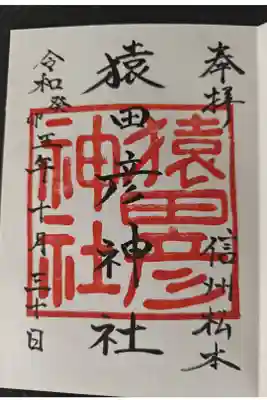 奉拝
信州松本
猿田彦神社
猿田彦
神社
令和癸卯五年十月三十日